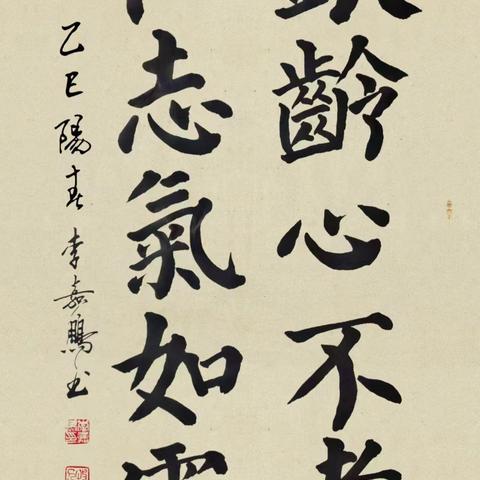 齡心不
志氣如
乙巳陽春李嘉鵬书